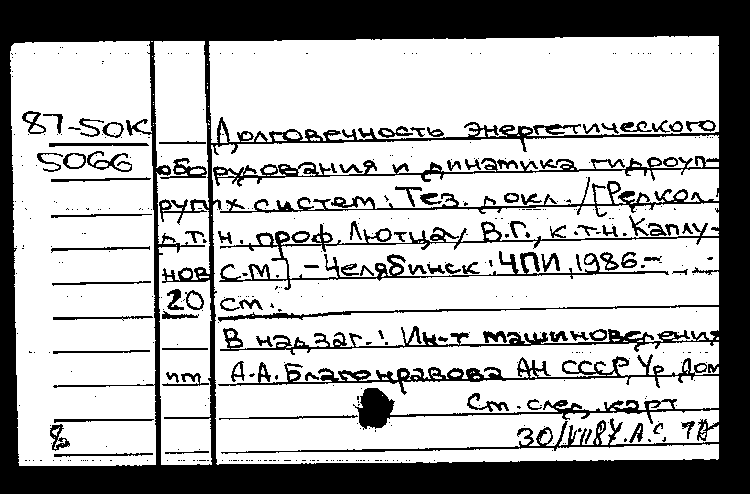 87-50К Долговечность энергетического
5066 оборудования и динамика гидроуп-
ругих систем: Тез. докл. /[Редкол.:
д.т.н., проф. Лютцау В.Г., к.т.н. Каплу-
нов С.М.]. - Челябинск: ЧПИ, 1986.-
20 см.
В надзаг.: Ин-т машиноведения
им. А.А. Благонравова АН СССР, Ур. Дом
Ст. след. карт.
30/VII87. А.С.